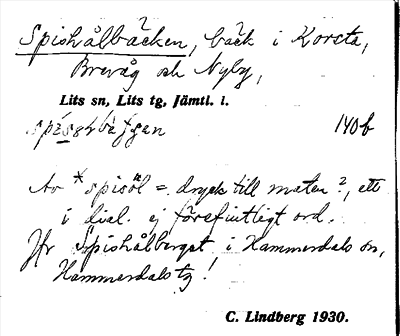 Spishålbäcken, bäck i Korsta,
Brevåg och Nyby,
Lits sn, Lits tg, Jämtl. l.
140b
Av *spisöl = dryck till maten?, ett
i dial. ej förefintligt ord.
Jfr Spishålberget i Hammerdals sn,
Hammerdals tg!
C. Lindberg 1930.